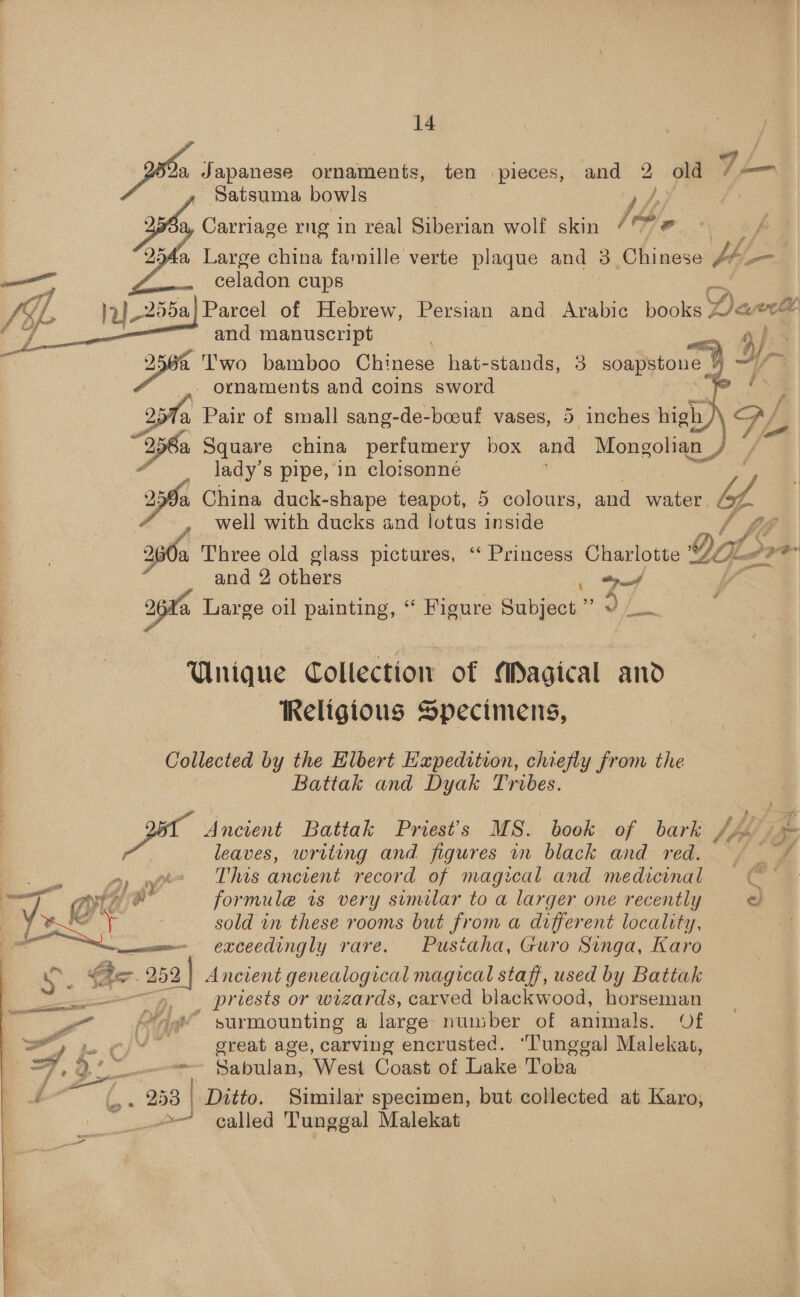 14
252a Japanese ornaments, ten pieces, and 2 old
Satsuma bowls
253a, Carriage rug in real Siberian wolf skin
254a Large china famille verte plaque and 3 Chinese
celadon cups
255a Parcel of Hebrew, Persian and Arabic books
and manuscript
256a Two bamboo Chinese hat-stands, 3 soapstone
ornaments and coins sword
257a Pair of small sang-de-bœuf vases, 5 inches high
258a Square china perfumery box and Mongolian
lady's pipe, in cloisonné
259a China duck-shape teapot, 5 colours, and water
well with ducks and lotus inside
260a Three old glass pictures, “Princess Charlotte”
and 2 others
261a Large oil painting, “Figure Subject”
Unique Collection of Magical and
Religious Specimens,
Collected by the Elbert Expedition, chiefly from the
Battak and Dyak Tribes.
251 Ancient Battak Priest's MS. book of bark
leaves, writing and figures in black and red.
This ancient record of magical and medicinal
formulæ is very similar to a larger one recently
sold in these rooms but from a different locality,
exceedingly rare. Pustaha, Guro Singa, Karo
252 Ancient genealogical magical staff, used by Battak
priests or wizards, carved blackwood, horseman
surmounting a large number of animals. Of
great age, carving encrusted. Tunggal Malekat,
Sabulan, West Coast of Lake Toba
253 Ditto. Similar specimen, but collected at Karo,
called Tunggal Malekat